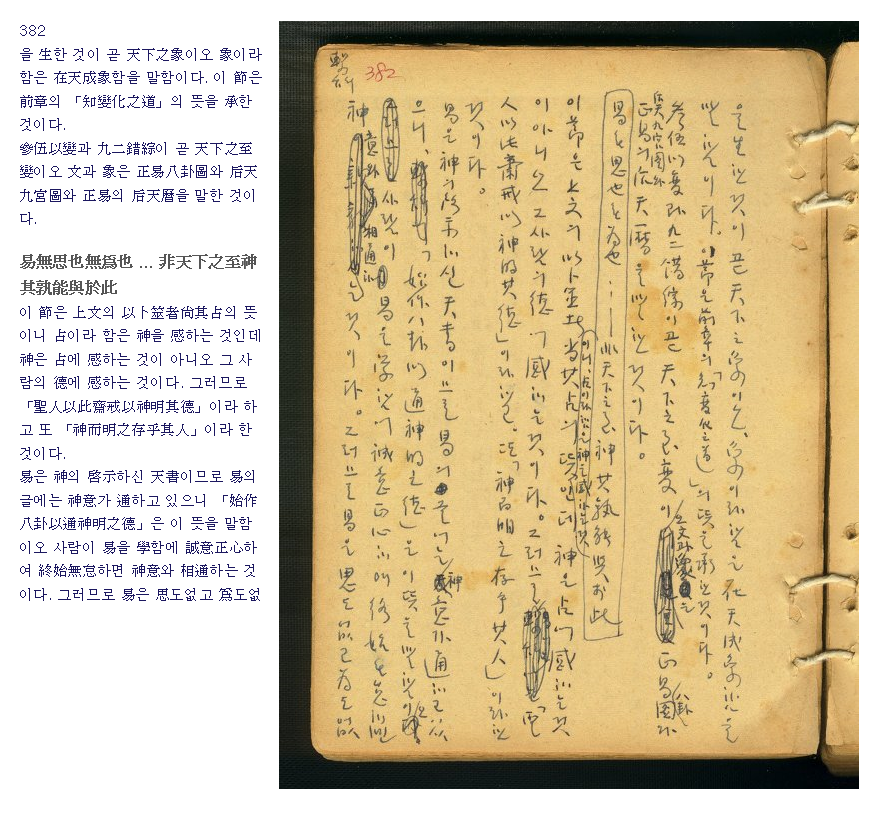 382
을 生한 것이 곧 天下之象이오 象이라
함은 在天成象함을 말함이다. 이 節은
前章의 「知變化之道」의 뜻을 承한
것이다.
參伍以變과 九二錯綜이 곧 天下之至
變이오 文과 象은 正易八卦圖와 后天
九宮圖와 正易의 后天曆을 말한 것이
다.
易無思也無爲也 ... 非天下之至神
其孰能與於此
이 節은 上文의 以卜筮者尙其占의 뜻
이니 占이라 함은 神을 感하는 것인데
神은 占에 感하는 것이 아니오 그 사
람의 德에 感하는 것이다. 그러므로
「聖人以此齋戒以神明其德」이라 하
고 또 「神而明之存乎其人」이라 한
것이다.
易은 神의 啓示하신 天書이므로 易의
글에는 神意가 通하고 있으니 「始作
八卦以通神明之德」은 이 뜻을 말함
이오 사람이 易을 學함에 誠意正心하
여 終始無怠하면 神意와 相通하는 것
이다. 그러므로 易은 思도없고 爲도없
382
을 生한 것이 곧 天下之象이오, 象이라 함은 在天成象함을
말함이다. 이 節은 前章의 「知變化之道」의 뜻을 承한 것이다.
參伍以變과 九二錯綜이 곧 天下之至變이오 文과 象은 正易八卦圖와
后天九宮圖와 正易의 后天曆을 말한 것이다.
易 思也 為也 …… 非天下之至神 其孰能與於此
이 節은 上文의 以卜筮者尙其占의 뜻이니 占이라 함은 神을 感하는 것인데 神은 占에 感하는 것
이 아니오 그 사람의 德에 感하는 것이다. 그러므로 「聖
人以此齋戒以神明其德」이라 하고 또 「神而明之存乎其人」이라 한
것이다.
易은 神의 啓示하신 天書이므로 易의 글에는 神意가 通하고 있
으니, 「始作八卦以通神明之德」은 이 뜻을 말함이오
사람이 易을 學함에 誠意正心하여 終始無怠하면
神意와 相通하는 것이다. 그러므로 易은 思도 없고 為도 없